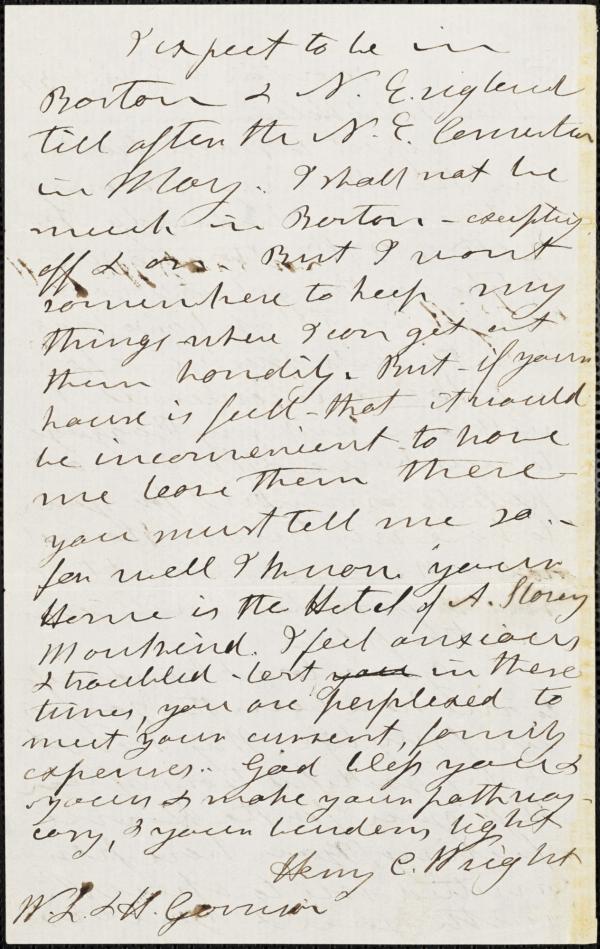 I expect to be in
Boston & N. England
till after the N. E. Convention
in May. I shall not be
much in Boston - excepting
off & on. But I want
somewhere to keep my
things where I can get at
them handily. But - if your
house is full - that it would
be inconvenient to have
me leave them there -
you must tell me so. -
for well I know your
Home is the Hotel of A. Slavery
Mankind. I feel anxious
& troubled - lest you in these
times, you are perplexed to
meet your current, family
expenses. God bless you &
yours & make your pathway
easy, & your burdens light
Henry C. Wright
W. L. & H. Garrison